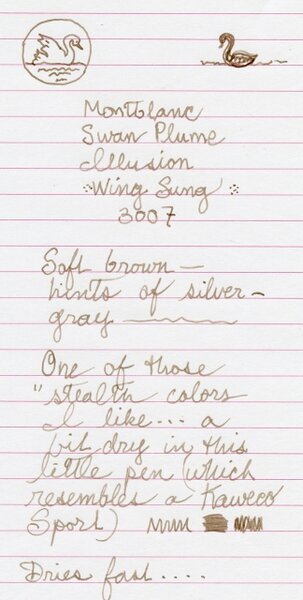 Montblanc
Swan Plume
Illusion
Wing Sung
3007
Soft brown —
hints of silver-
gray
One of those
"stealth colors
I like... a
bit dry in this
little pen (which
resembles a Kaweco
Sport)
Dries fast.....